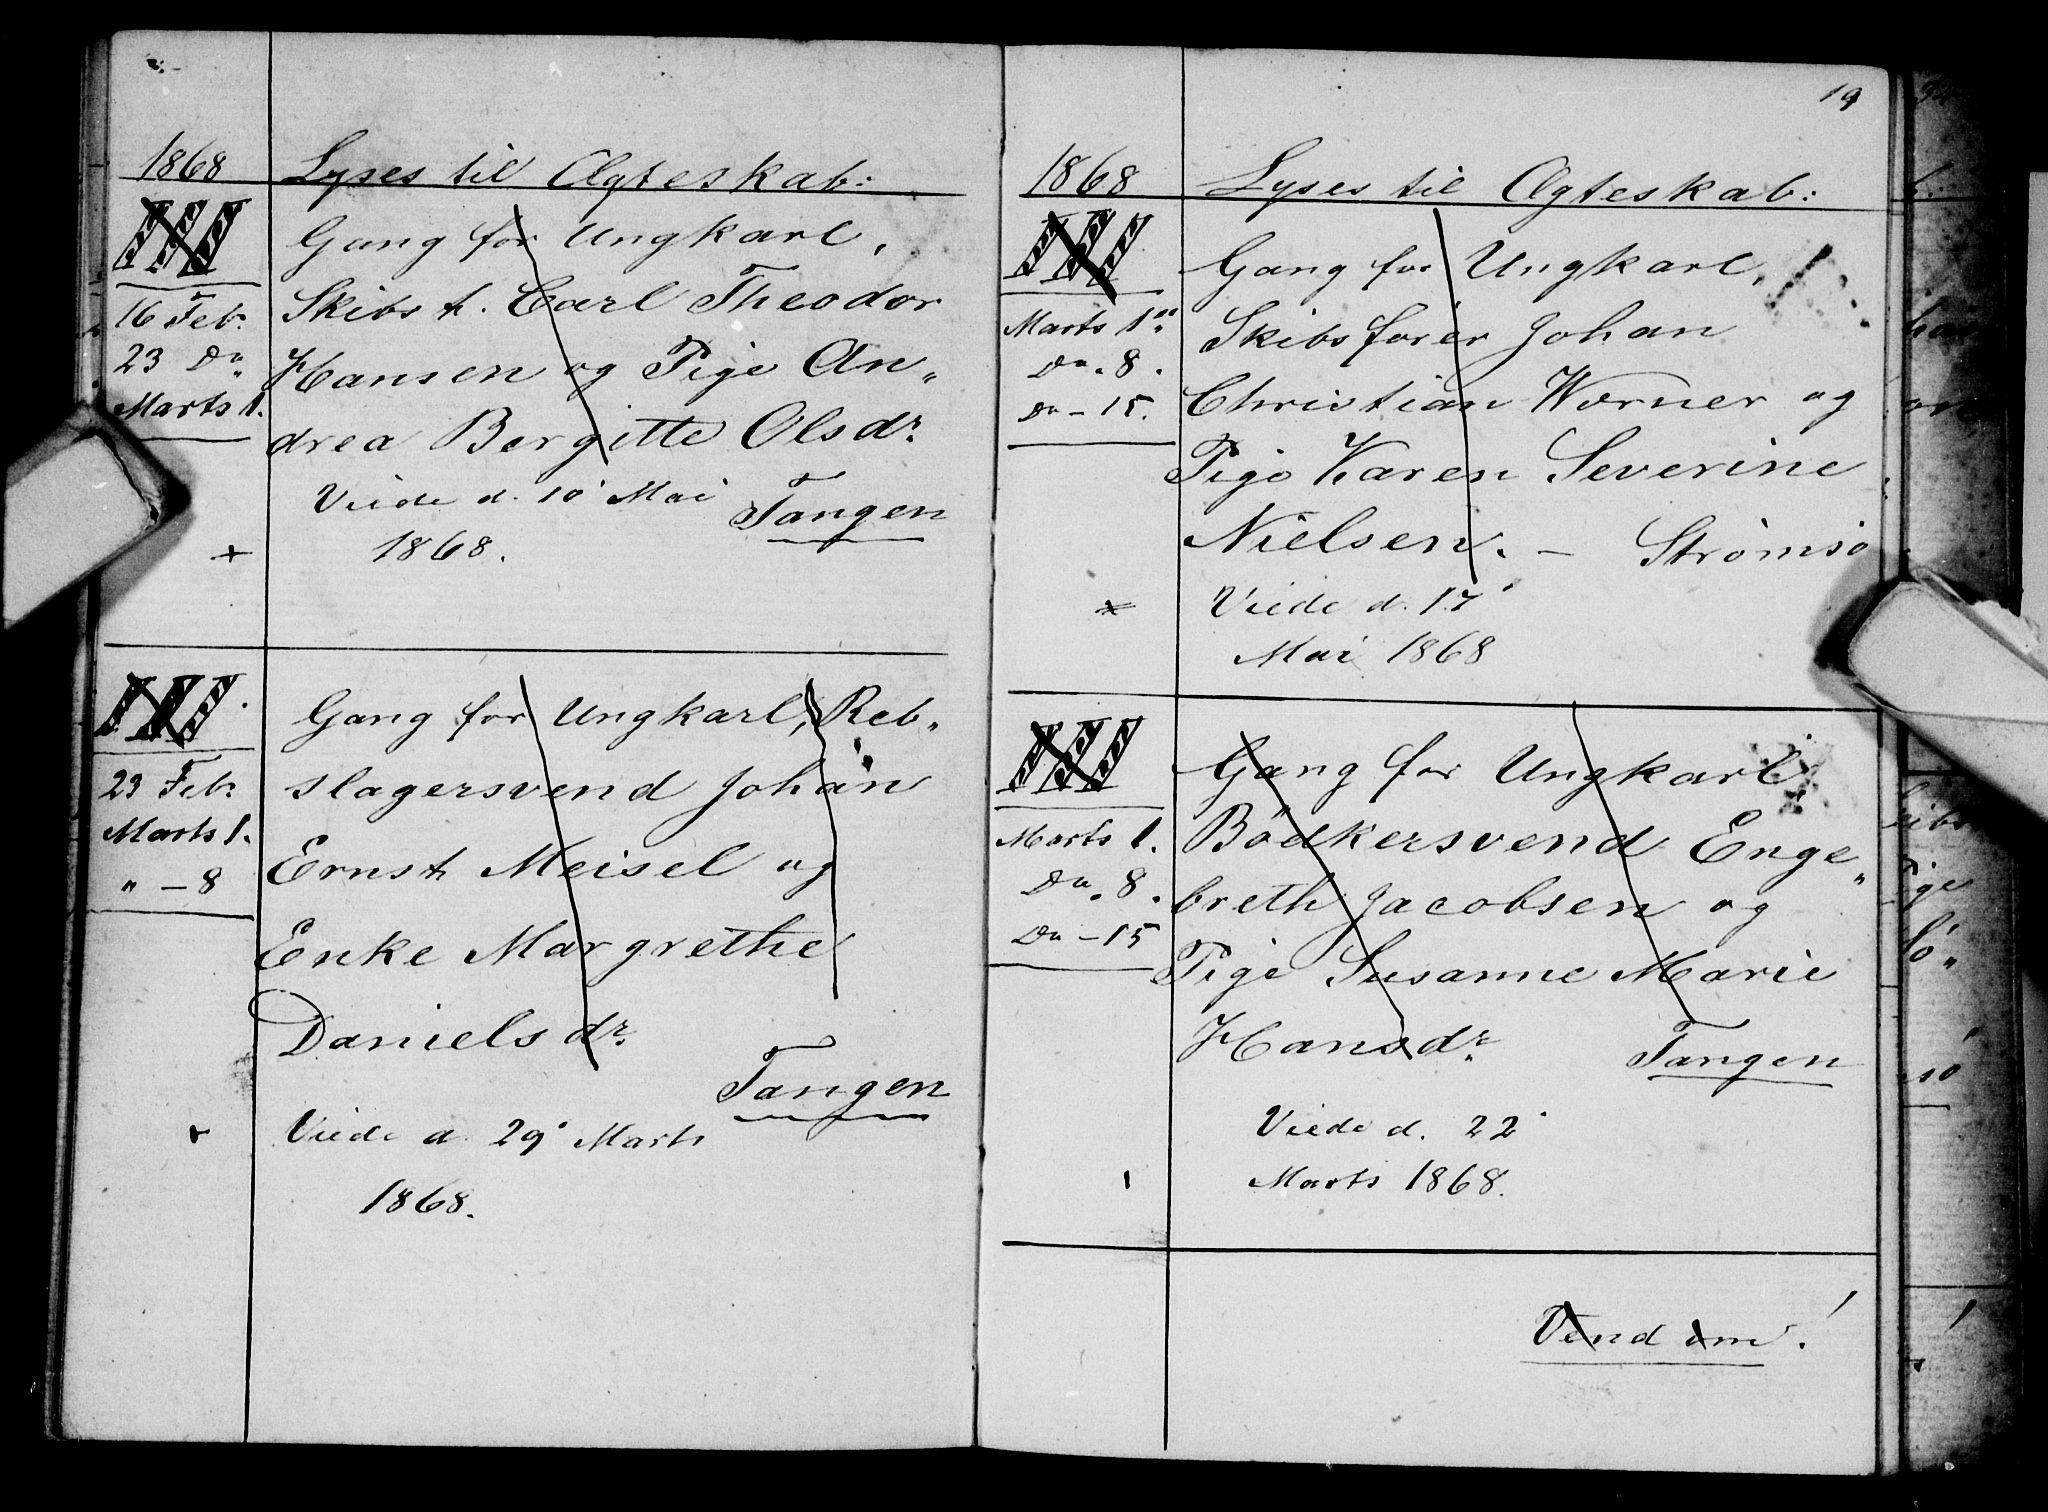 1868 Lyses til Ægteskab:
III Gang for Ungkarl,
16 Feb. Skibst. Carl Theodor
23 Do Hansen og Pige An„
Marts 1. drea Bergitte Olsdr.
Viede d. 10 Mai Tangen
+ 1868.
III Gang for Ungkarl, Reb„
23 Feb. slagersvend Johan
Marts 1. Ernst Meisel og
„ – 8
Enke Margrethe
Danielsdr.
Tangen
+ Viede d. 29 Marts
1868.
19
1868 Lyses til Ægteskab:
III Gang for Ungkarl,
Marts 1 Skibsfører Johan
Do. 8.
Do – 15. Christian Werner og
Pige Karen Severine
Nielsen. – Strømsø
+ Viede d. 17
Mai 1868
III Gang for Ungkarl,
Marts 1. Bødkersvend Enge„
Do. 8. breth Jacobsen og
Do – 15 Pige Susanne Marie
Hansdr. Tangen
Viede d. 22
Marts 1868.
Vend om!